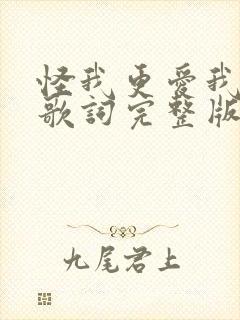 怪我更愛我
歌詞完整版
九尾君上